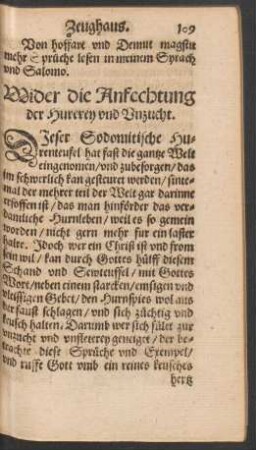 Zeughaus. 109
Von hoffart vnd Demut magstu
mehr Sprüche lesen in meinem Sprach
vnd Salomo.
Wider die Anfechtung
der Hurerey vnd Vnzucht.
DJeser Sodomitische Hu-
renteufel hat fast die gantze Welt
eingenomen/ vnd zubesorgen/ das
im schwerlich kan gesteuret werden/ sinte-
mal der mehrer teil der Welt gar darinne
ersoffen ist/ das man hinförder das ver-
damliche Hurnleben/ weil es so gemein
worden/ nicht gern mehr fur ein laster
halte. Jdoch wer ein Christ ist vnd from
sein wil/ kan durch Gottes hülff diesem
Schand vnd Sewteuffel/ mit Gottes
Wort/ neben einem starcken/ emsigen vnd
vleissigen Gebet/ den Hurnspies wol aus
der faust schlagen/ vnd sich züchtig vnd
keusch halten. Darumb wer sich fület zur
vnzucht vnd vnfleterey geneiget/ der be-
trachte diese Sprüche vnd Exempel/
vnd ruffe Gott vmb ein reines keusches
hertz